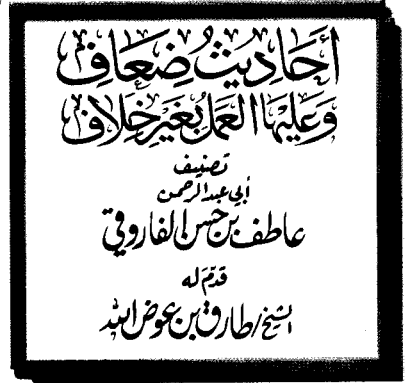 أَحَادِيثُ ضِعَافٌ
وَعَلَيْهَا العَمَلُ بِغَيْرِ خِلَافٍ
تصنيف
أبي عبد الرحمن
عاطف بن حسن الفاروقي
قدّم له
الشيخ/طارق بن عوض الله